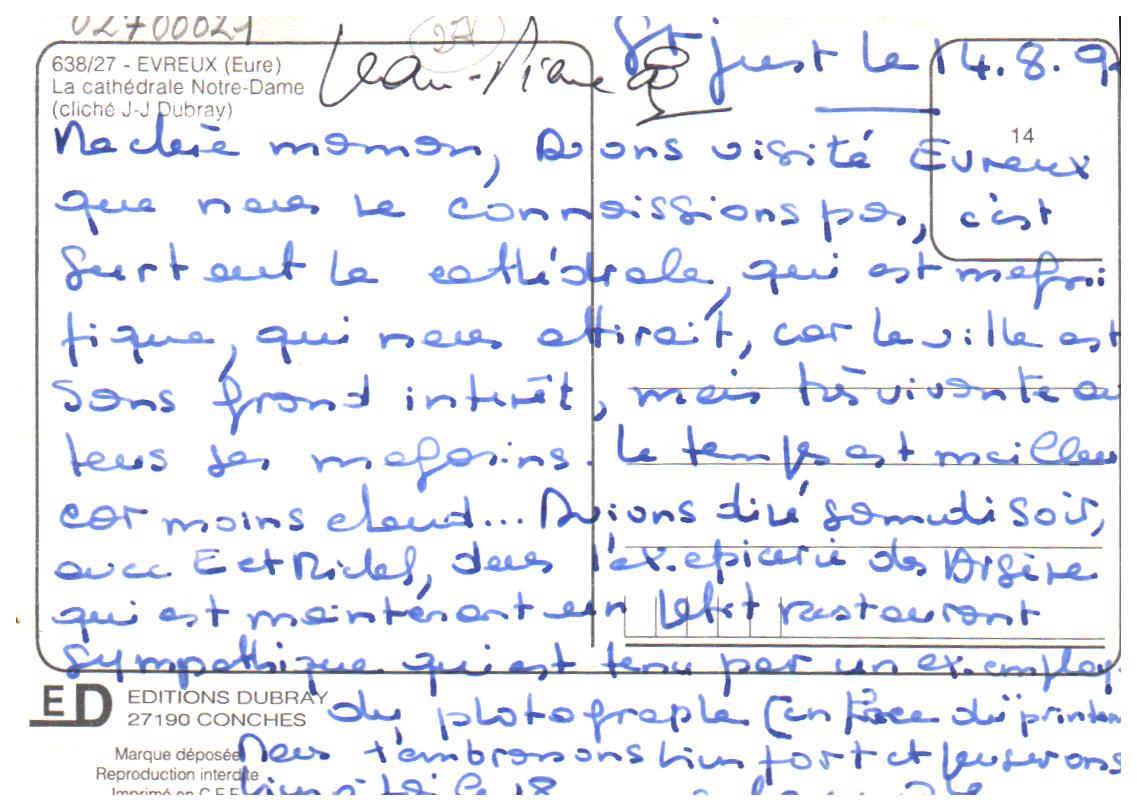 02700021
27
638/27 - EVREUX (Eure)
La cathédrale Notre-Dame
(cliché J-J Dubray)
14
St Just le 14.8.9
Ma chère maman, Avons visité Evreux
que nous ne connaissions pas, c'est
surtout la cathédrale, qui est magni
fique, qui nous attirait, car la ville est
sans grand intérêt, mais très vivante a
tous ses magasins. Le temps est meilleu
car moins chaud... Avions diné samedi soir,
avec E et Michel, dans l'ex. epicerie des
qui est maintenant un petit restaurant
sympathique qui est tenu par un ex. employ
du photographe (en face du printem
Nous t'embrassons bien fort et penserons
bien à toi le 18
ED EDITIONS DUBRAY
27190 CONCHES
Marque déposée
Reproduction interdite
Imprimé en C.E.E